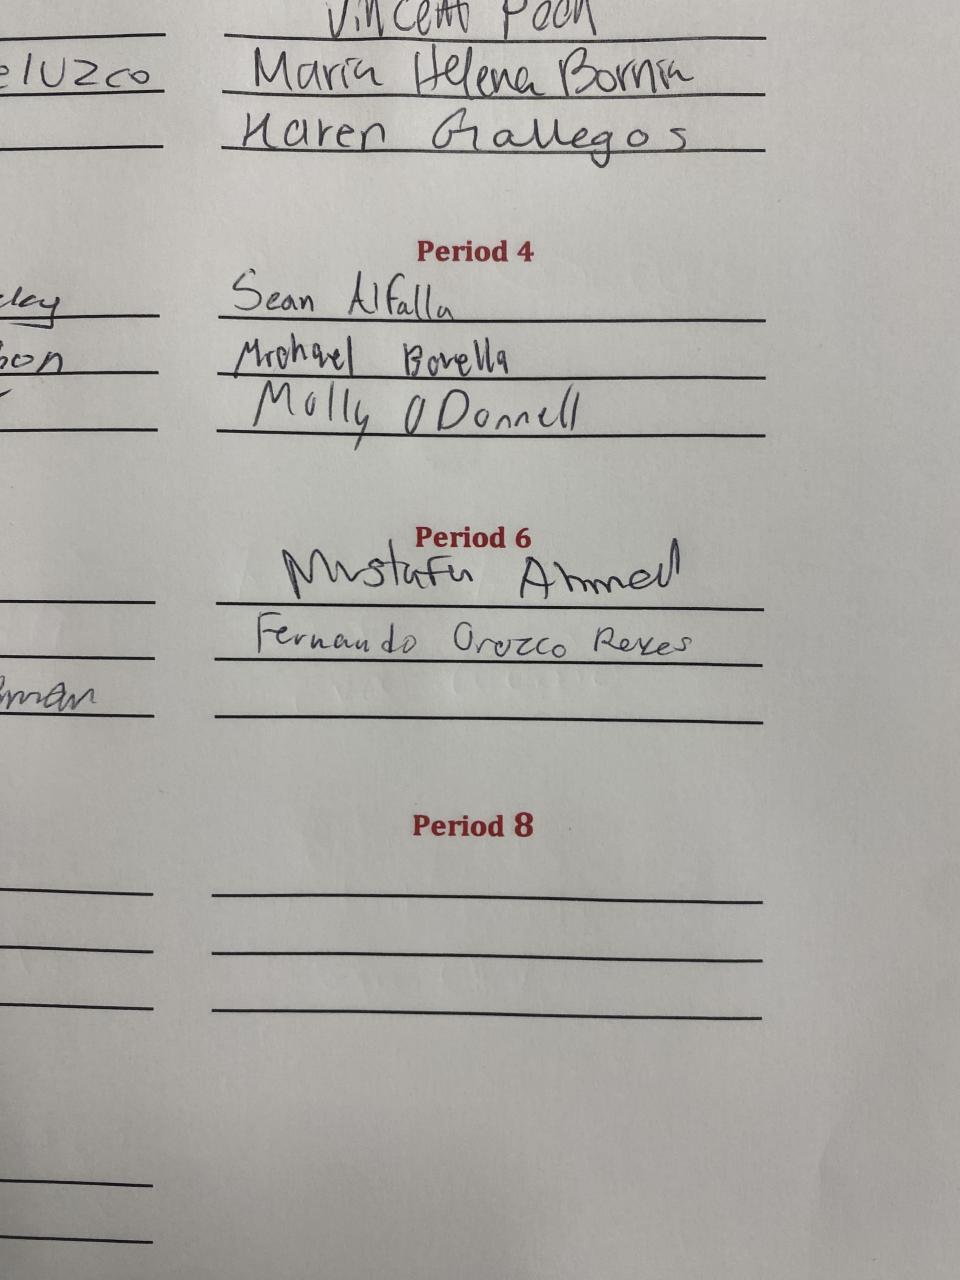 Vincent Poon
eluzco
Maria Helena Bornia
Karen Gallegos
Period 4
day
Sean Alfalla
son
Michael Borella
Molly O'Donnell
Period 6
Mustafa Ahmed
Fernando Orozco Reyes
man
Period 8